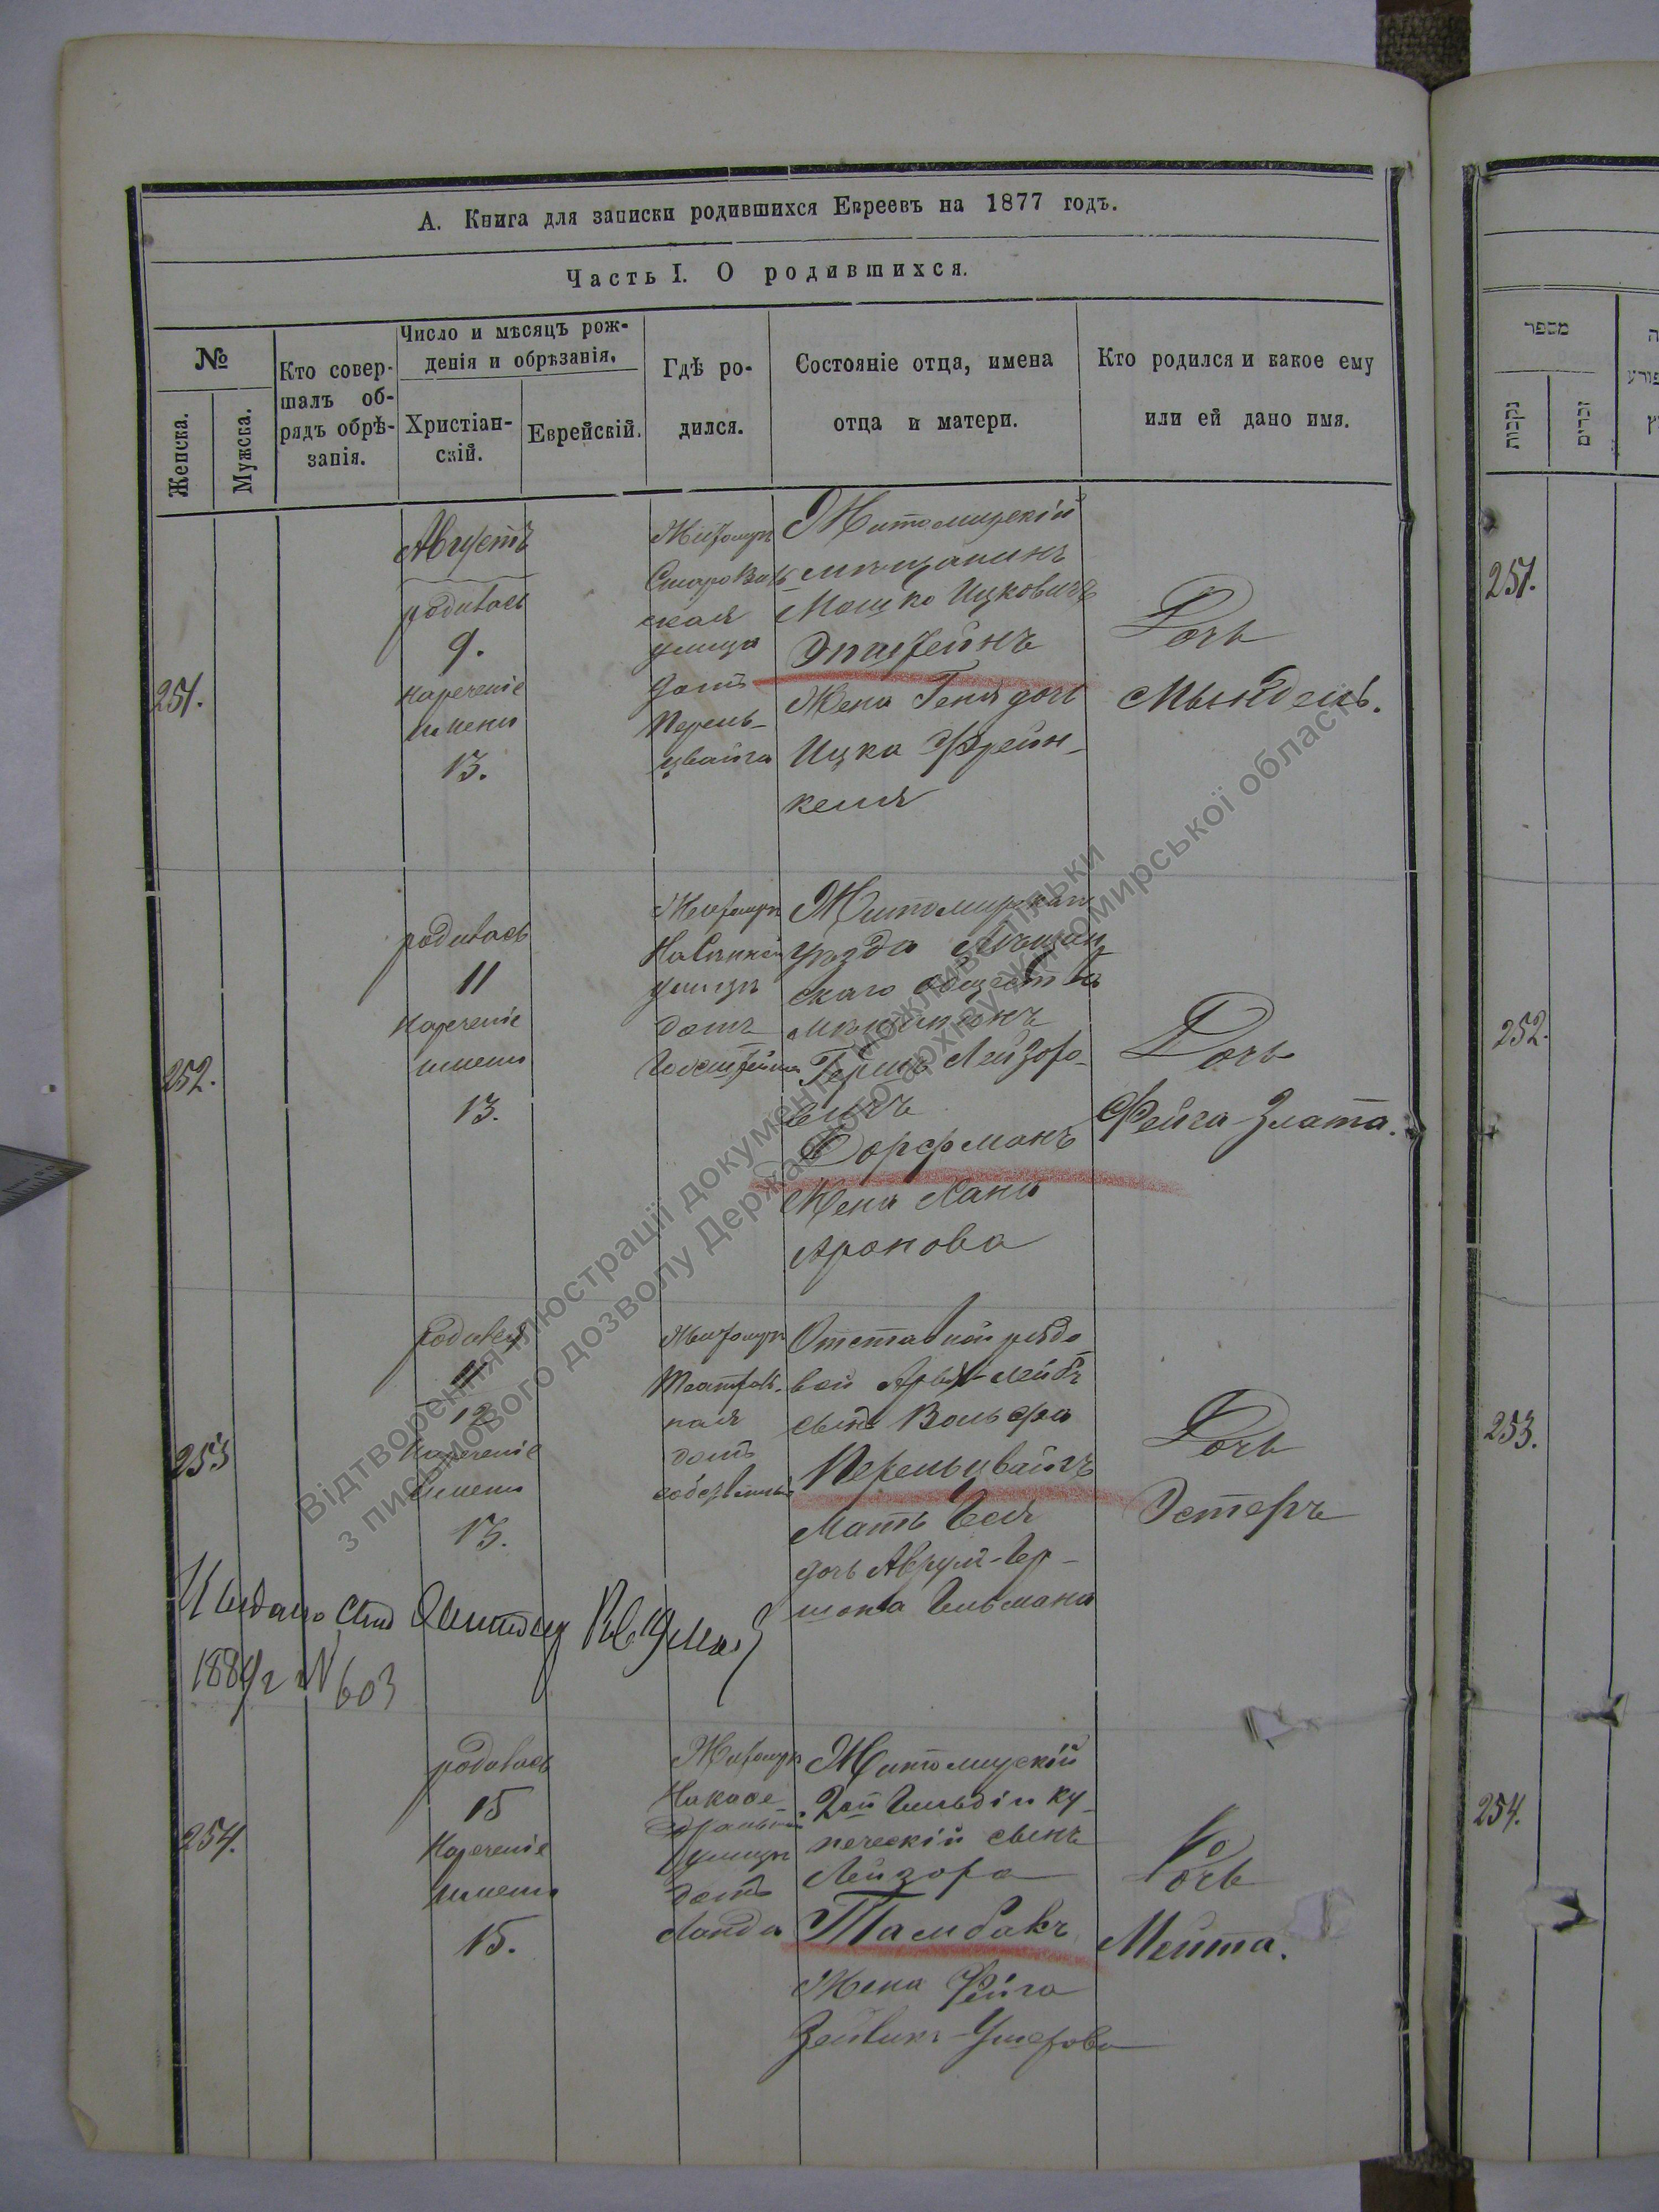 А. Книга для записки родившихся Евреевъ на 1877 годъ.
Часть I. О родившихся.
№
Женска.
Мужска.
Кто совер-
шалъ об-
рядъ обрѣ-
занія.
Число и мѣсяцъ рож-
денія и обрѣзанія.
Христіан-
скій.
Еврейскій.
Гдѣ ро-
дился.
Состояніе отца, имена
отца и матери.
Кто родился и какое ему
или ей дано имя.
מספר
נקבות
זכרים
251.
Августъ
родилась
9.
нареченіе
имени
13.
Житомиръ
улица
домъ
Перель-
цвайга
Житомирскій
мѣщанинъ
Мошко Ицковичъ
Эпштейнъ
Жена Геня дочь
Ицка Френ-
келя
Дочь
Мындель.
251.
252.
родилась
11
нареченіе
имени
13.
Житомиръ
улица
домъ
Житомирскаго
уѣзда
скаго общества
мѣщанинъ
Гершъ Лейзоро-
вичъ
Дорфманъ
Жена Хана
Аронова
Дочь
Фейга-Злата.
252.
253
родилась
11
12
нареченіе
имени
13.
Житомиръ
домъ
Отставной рядо-
вой Арья-Лейбъ
сынъ Вольфа
Перельцвайгъ
Мать
дочь Аврум-Гер-
шона Гельмана
Дочь
Эстеръ
253.
603
254.
родилась
15
нареченіе
имени
15.
Житомиръ
улица
домъ
Ланда
Житомирскій
2ой Гильдіи ку-
печескій сынъ
Лейзоръ
Тамбакъ
Жена Фейга
Дочь
Мейта.
254.
Відтворення ілюстрації документу можливо тільки
з письмового дозволу Державного архіву Житомирської області